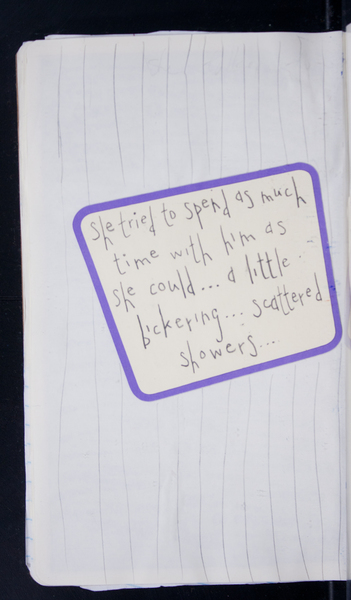 she tried to spend as much
time with him as
she could... a little
bickering... scattered
showers...